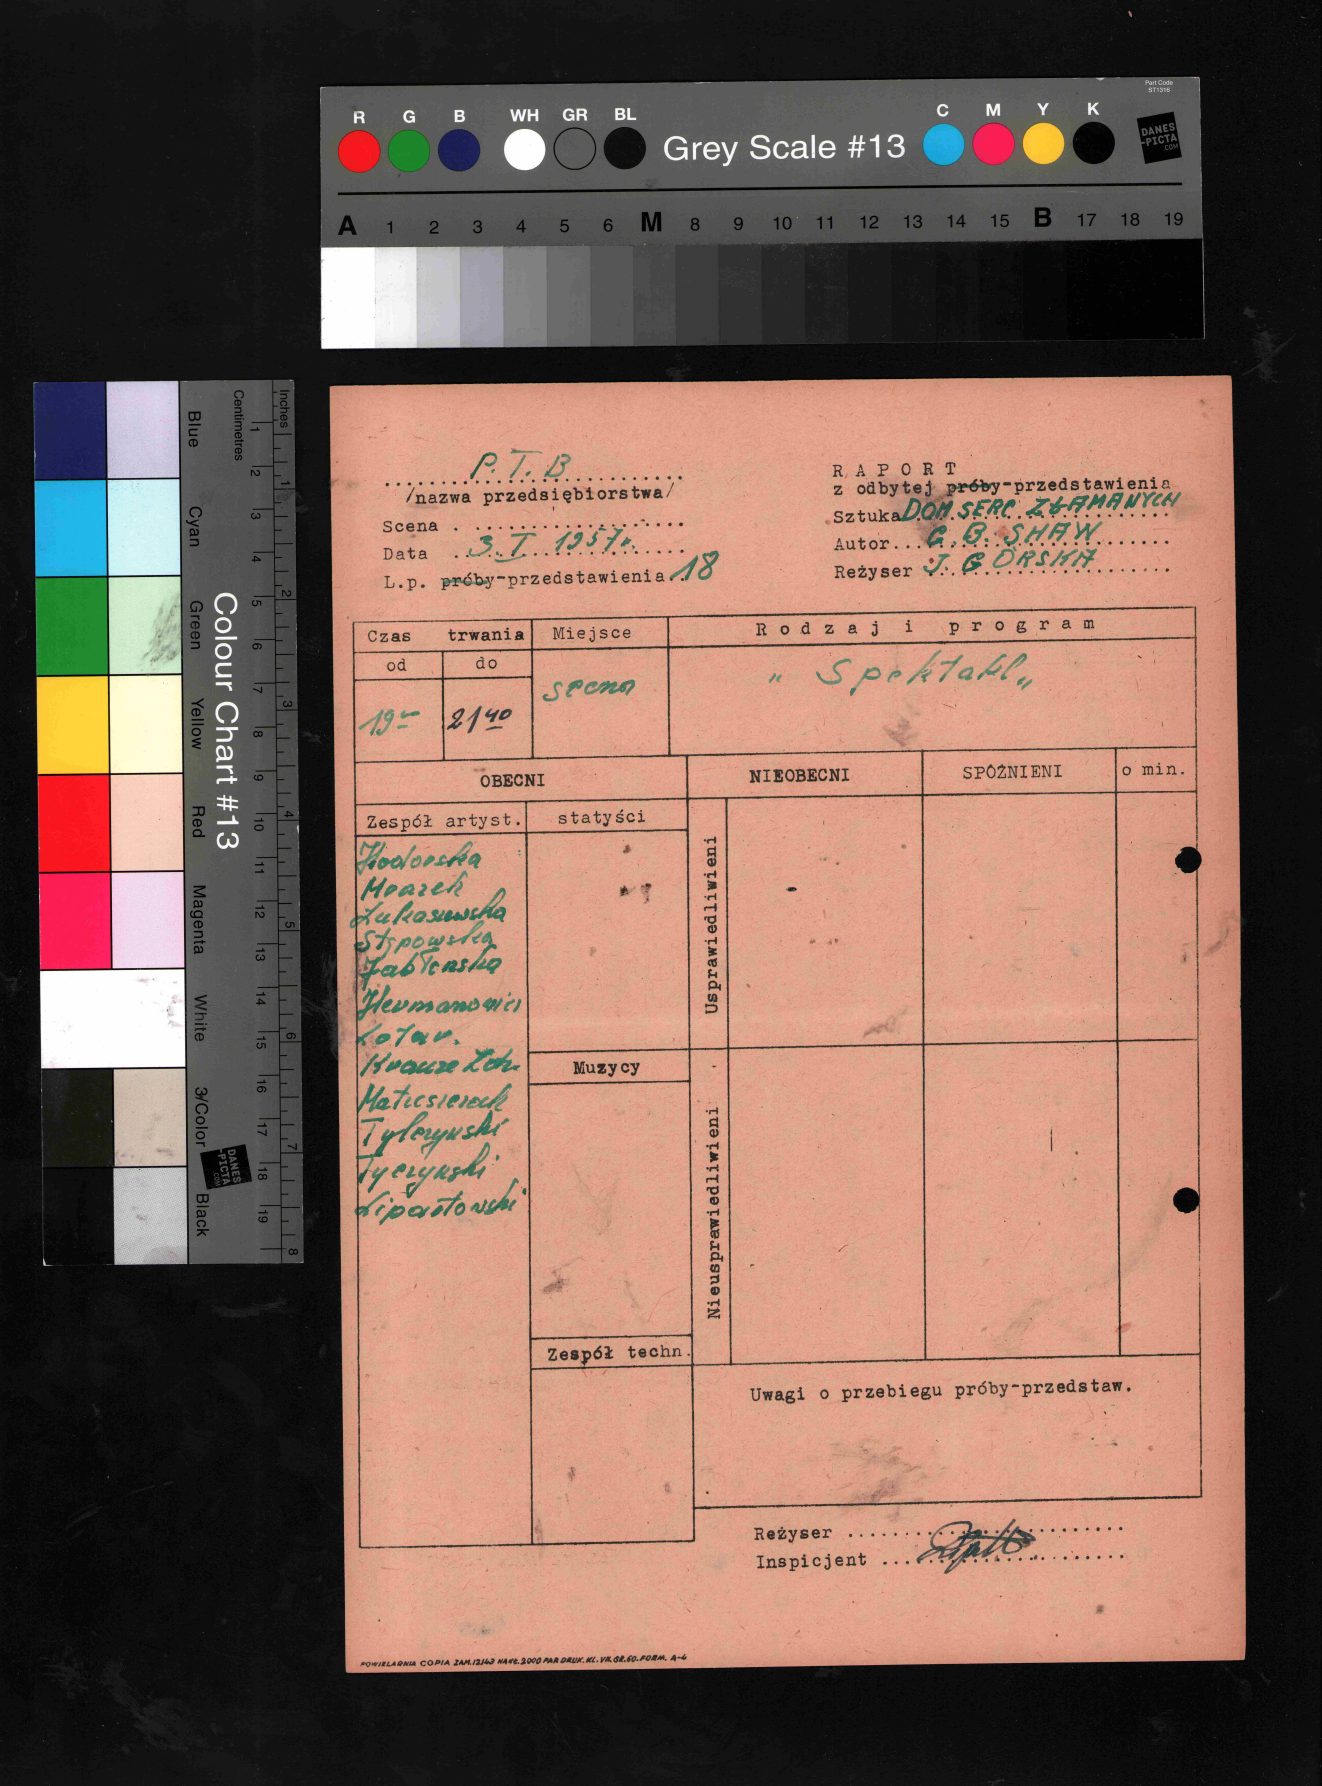 Part Code
ST1316
R G B WH GR BL
Grey Scale #13
C M Y K
DANES
-PICTA
.COM
A 1 2 3 4 5 6 M 8 9 10 11 12 13 14 15 B 17 18 19
Colour Chart #13
Blue Cyan Green Yellow Red Magenta White 3/Color Black
Centimetres
1 2 3 4 5 6 7 8 9 10 11 12 13 14 15 16 17 18 19
Inches
1 2 3 4 5 6 7 8
DANES
-PICTA
.COM
P. T. B
/nazwa przedsiębiorstwa/
Scena
Data 3. I 1957r.
L.p. próby-przedstawienia 18
R A P O R T
z odbytej próby-przedstawienia
Sztuka DOM SERC ZŁAMANYCH
Autor... G. B. SHAW
Reżyser J. GÓRSKA
Czas trwania Miejsce Rodzaj i program
od do
19 21 40
scena
" Spektakl "
OBECNI NIEOBECNI SPÓŹNIENI o min.
Zespół artyst. statyści
Usprawiedliwieni
Mrazek
Łukaszewska
Stępowska
Jabłońska
Hermanowicz
Lotar.
Krauze
Matusierak
Tylczyński
Tyczyński
Muzycy
Nieusprawiedliwieni
Zespół techn.
Uwagi o przebiegu próby-przedstaw.
Reżyser
Inspicjent
POWIELARNIA COPIA ZAM. 12143 NAKŁ. 2000 PAP. DRUK. KL. VII. GR. 60. FORM. A-4